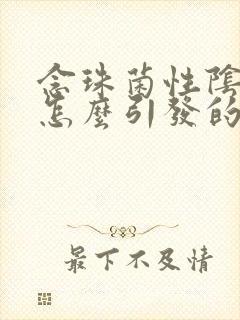 念珠菌性陰
怎麼引發的
最下不及情